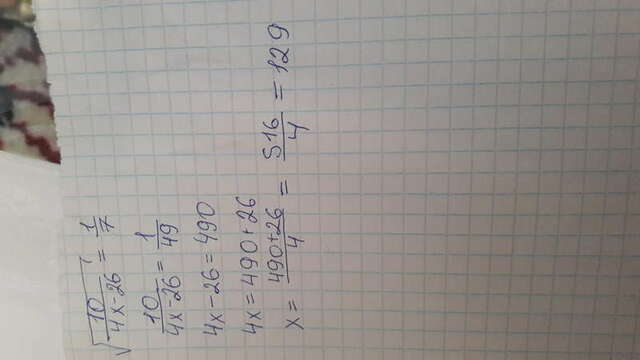 √(10/(4x-26)) = 1/7
10/(4x-26) = 1/49
4x-26=490
4x=490+26
x = (490+26)/4 = 516/4 = 129